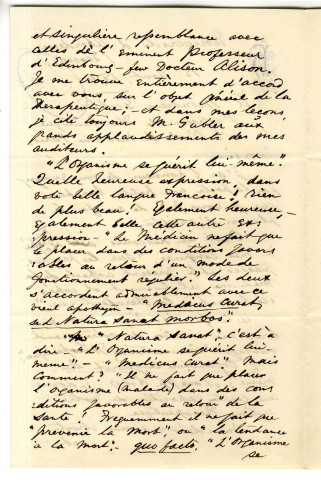 et singulière resemblance avec
celles de l'eminent Professeur
d'Edinbourg – feu Docteur Alison.
Je me trouve entièrement d'accord
avec vous sur l'objet général de la
Therapeutique; – et dans mes leçons,
je cite toujours M. Gubler aux
grands applaudissements des mes
auditeurs.
"L'Organisme se guérit lui-même".
Quelle heureuse expression, dans
votre belle langue Francoise! rien
de plus beau! Egalement heureuse –
egalement belle cette autre Ex-
pression – "Le Médicin ne fait que
le placer dans des conditions favor-
ables au retour d'un mode de
fonctionnement régulier." Les deux
s'accordent admirablement avec ce
vieux apothegm – "Medicus curat,
sed Natura Sanat morbos".
"Natura Sanat", c'est à
dire – "L'Organisme se guérit lui-
même": – "Medicus curat". Mais
comment? "Il ne fait que placer
l'Organisme (malade) dans des con-
ditions favorables au retour" de la
Santé. Frequemment il ne fait que
"prevenir la mort", ou "la tendance
à la mort": – quo facto, "L'Organisme
se